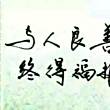 与人良善
终得福